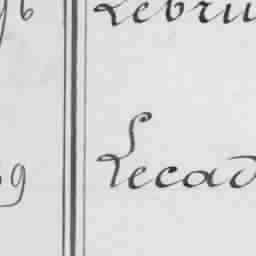 96 Lebru
99 Lecad